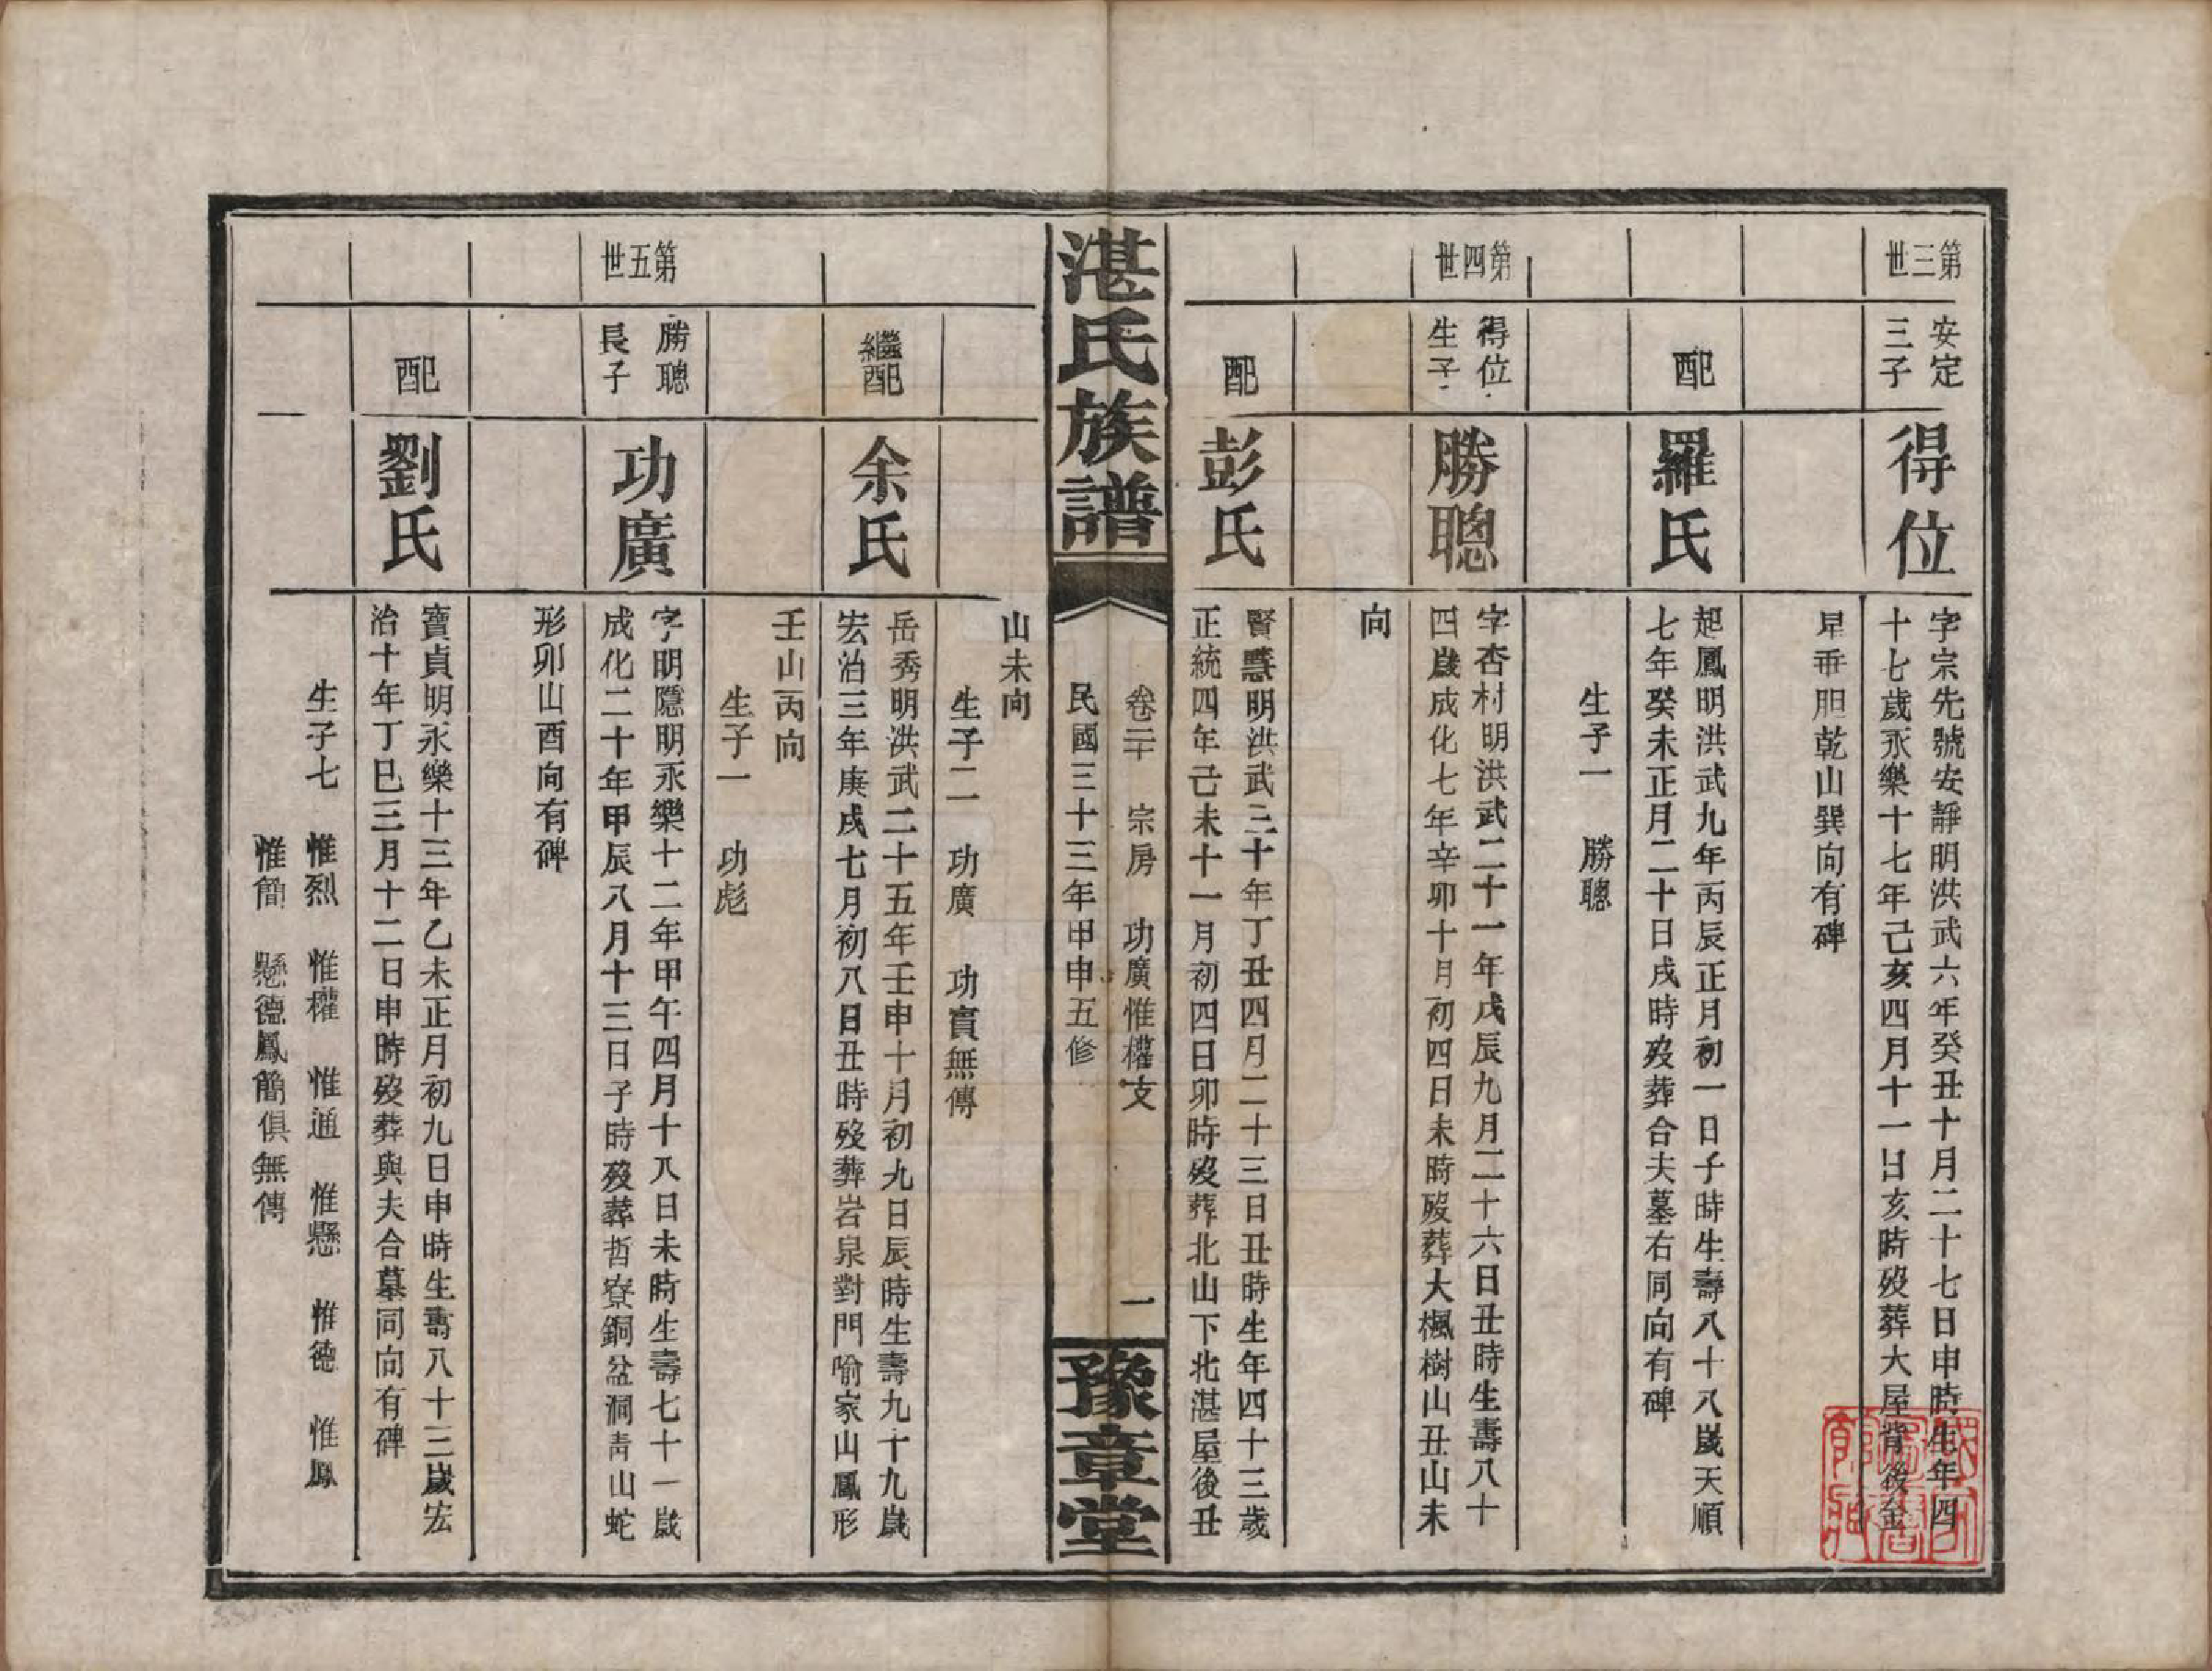 第三世
安定
三子
得位
字宗先號安靜明洪武六年癸丑十月二十七日申時生年四
十七歲永樂十七年己亥四月十一日亥時歿葬大屋背後金
星垂胆乾山巽向有碑
配
羅氏
起鳳明洪武九年丙辰正月初一日子時生壽八十八歲天順
七年癸未正月二十日戌時歿葬合夫墓右同向有碑
生子一 勝聰
第四世
得位
生子
勝聰
字杏村明洪武二十一年戊辰九月二十六日丑時生壽八十
四歲成化七年辛卯十月初四日未時歿葬大楓樹山丑山未
向
配
彭氏
賢慧明洪武三十年丁丑四月二十三日丑時生年四十三歲
正統四年己未十一月初四日卯時歿葬北山下北湛屋後丑
湛氏族譜
卷二十 宗房 功廣惟權支 一
民國三十三年甲申五修
豫章堂
山未向
生子二 功廣 功實無傳
繼配
余氏
岳秀明洪武二十五年壬申十月初九日辰時生壽九十九歲
宏治三年庚戌七月初八日丑時歿葬岩泉對門喻家山鳳形
壬山丙向
生子一 功彪
第五世
勝聰
長子
功廣
字明隱明永樂十二年甲午四月十八日未時生壽七十一歲
成化二十年甲辰八月十三日子時歿葬哲寮銅盆洞青山蛇
形卯山酉向有碑
配
劉氏
寶貞明永樂十三年乙未正月初九日申時生壽八十三歲宏
治十年丁巳三月十二日申時歿葬與夫合墓同向有碑
生子七 惟烈 惟權 惟通 惟懸 惟德 惟鳳
惟簡 懸德鳳簡俱無傳